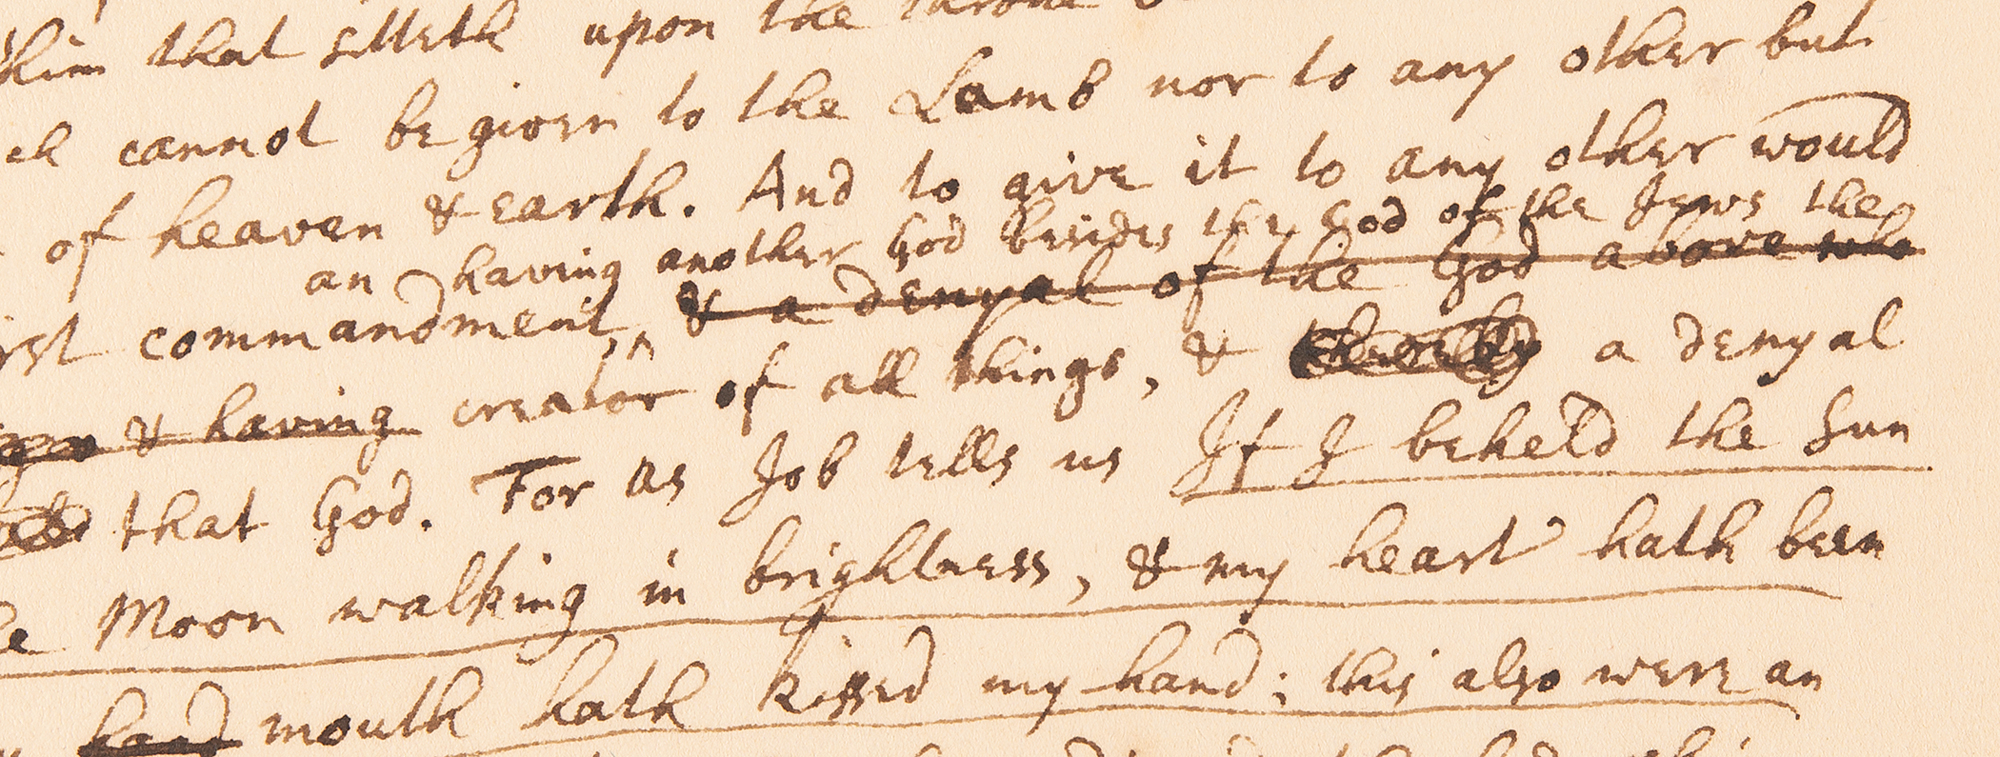 him that sitteth upon the throne
cannot be given to the Lamb nor to any other but
of heaven & earth. And to give it to any other would
an having another God besides the God of the Jews the
commandment, & a denyal of the God above who
& having creator of all things, & thereby a denyal
that God. For as Job tells us If I beheld the Sun
Moon walking in brightness, & my heart hath been
hand mouth hath kissed my hand; this also were an